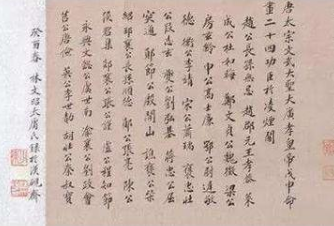 唐太宗文武大聖大廣孝皇帝戊申命
畫二十四功臣於凌煙閣
趙公長孫無忌 趙郡元王孝恭 萊
成公杜如晦 鄭文貞公魏徵 梁公
房玄齡 申公高士廉 鄂公尉遲敬
德 衛公李靖 宋公蕭瑀 褒忠壯
公段志玄 夔公劉弘基 蔣忠公屈
突通 鄖節公殷開山 譙襄公柴
紹 邳襄公長孫順德 鄖公張亮 陳公
侯君集 郯襄公張公謹 盧公程知節
永興文懿公虞世南 渝襄公劉政會
莒公唐儉 英公李世勣 胡壯公秦叔寶
癸酉春 林文昭